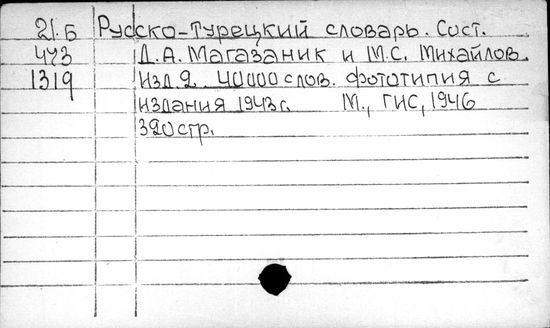 21.Б Русско-турецкий словарь. Сост.
473 Д.А. Магазаник и М.С. Михайлов.
1319 Изд.2. 40000 слов. фототипия с
издания 1943г. М., ГИС, 1946
320стр.